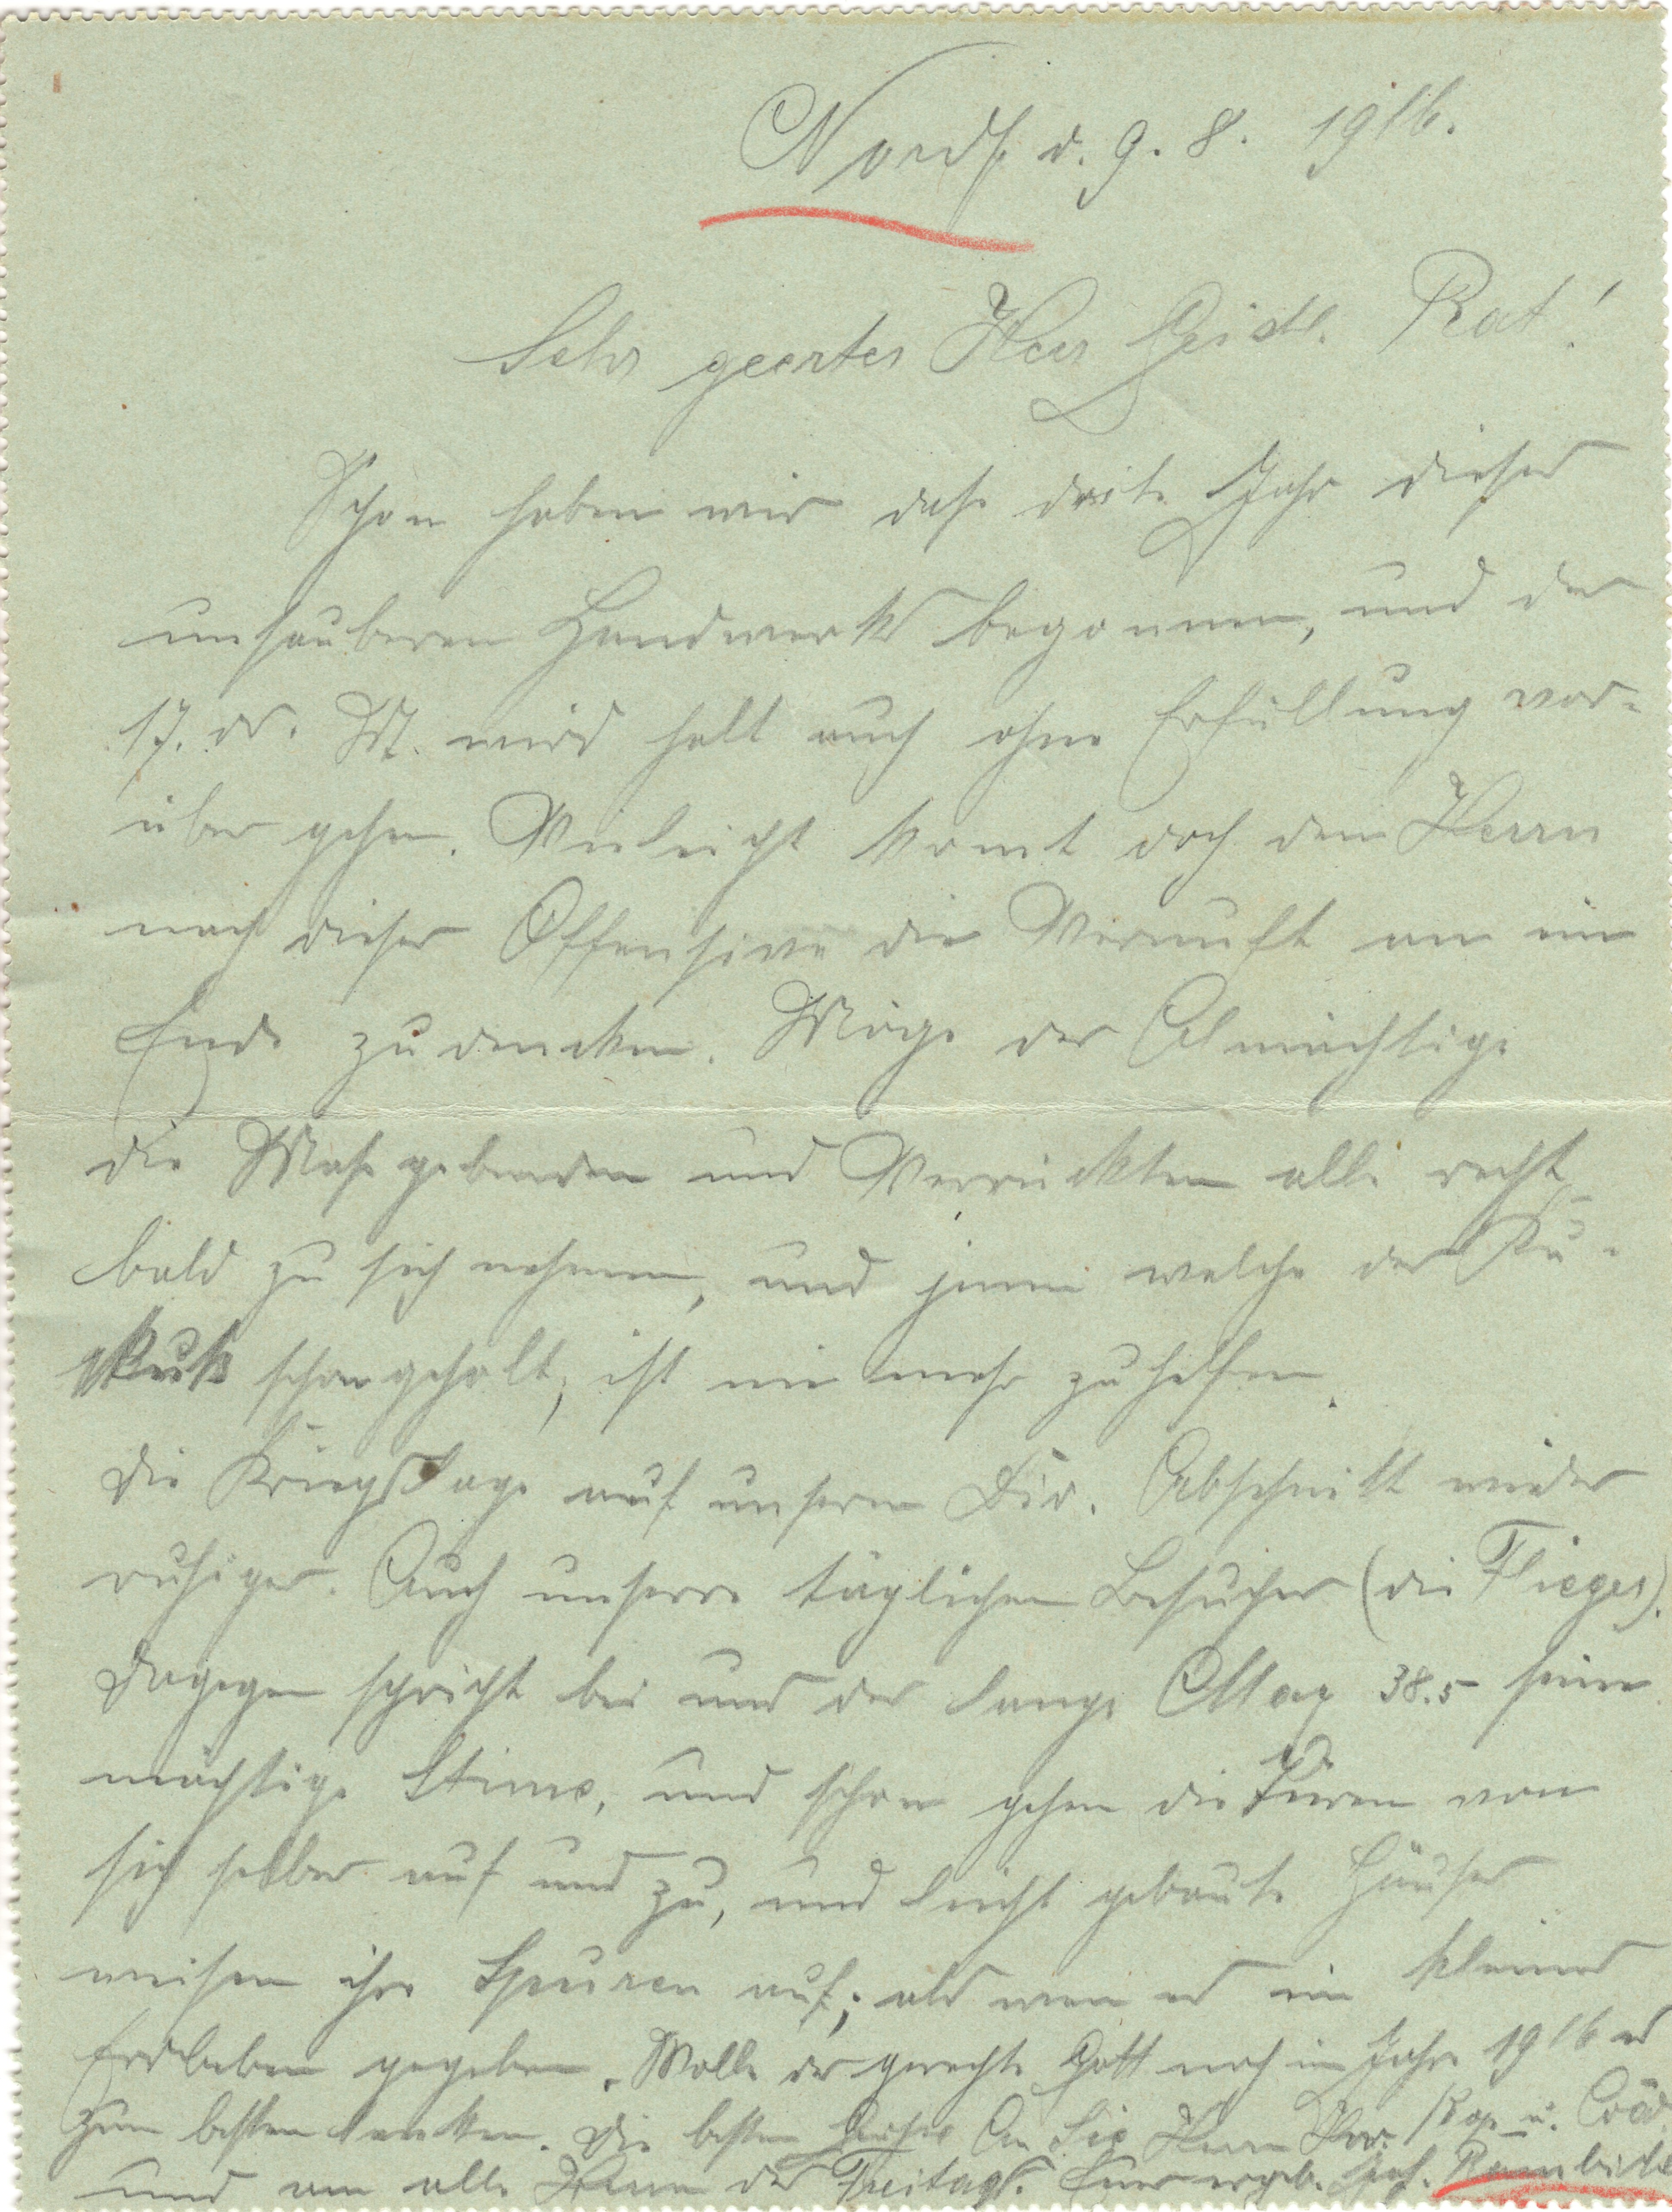 Nordf. d. 9. 8. 1916.
Sehr geerter Herr Geistl. Rat!
Schon haben wir daß drite Jahr dieses
unsauberen Handwerks begonnen, und der
17. ds. M. wird halt auch ohne Erfüllung vor-
über gehen. Vieleicht komt doch den Herrn
nach dieser Offensive die Vernuft an ein
Ende zu dencken. Möge der Almächtige
die Maßgebenden und Verrückten alle recht
bald zu sich nehmen, und jenen welche der Ku-
kuk schon geholt, ist nie mehr zu helfen.
Die Kriegslage auf unseren Div. Abschnitt wieder
ruhiger. Auch unsere täglichen Besucher (die Flieger).
Dagegen spricht bei uns der lange Max 38.5 seine
mächtige Stime, und schon gehen die Türen von
sich selber auf und zu, und leicht gebaute Häuser
weisen ihre Spuren auf, als wen es ein kleines
Erdbeben gegeben. Wolle der gerechte Gott noch im Jahre 1916 es
zum besten lencken. Die besten Grüße An Sie Herrn Kop. u. Coad.
und an alle Herrn des Freitags. Euer ergeb. Jos.